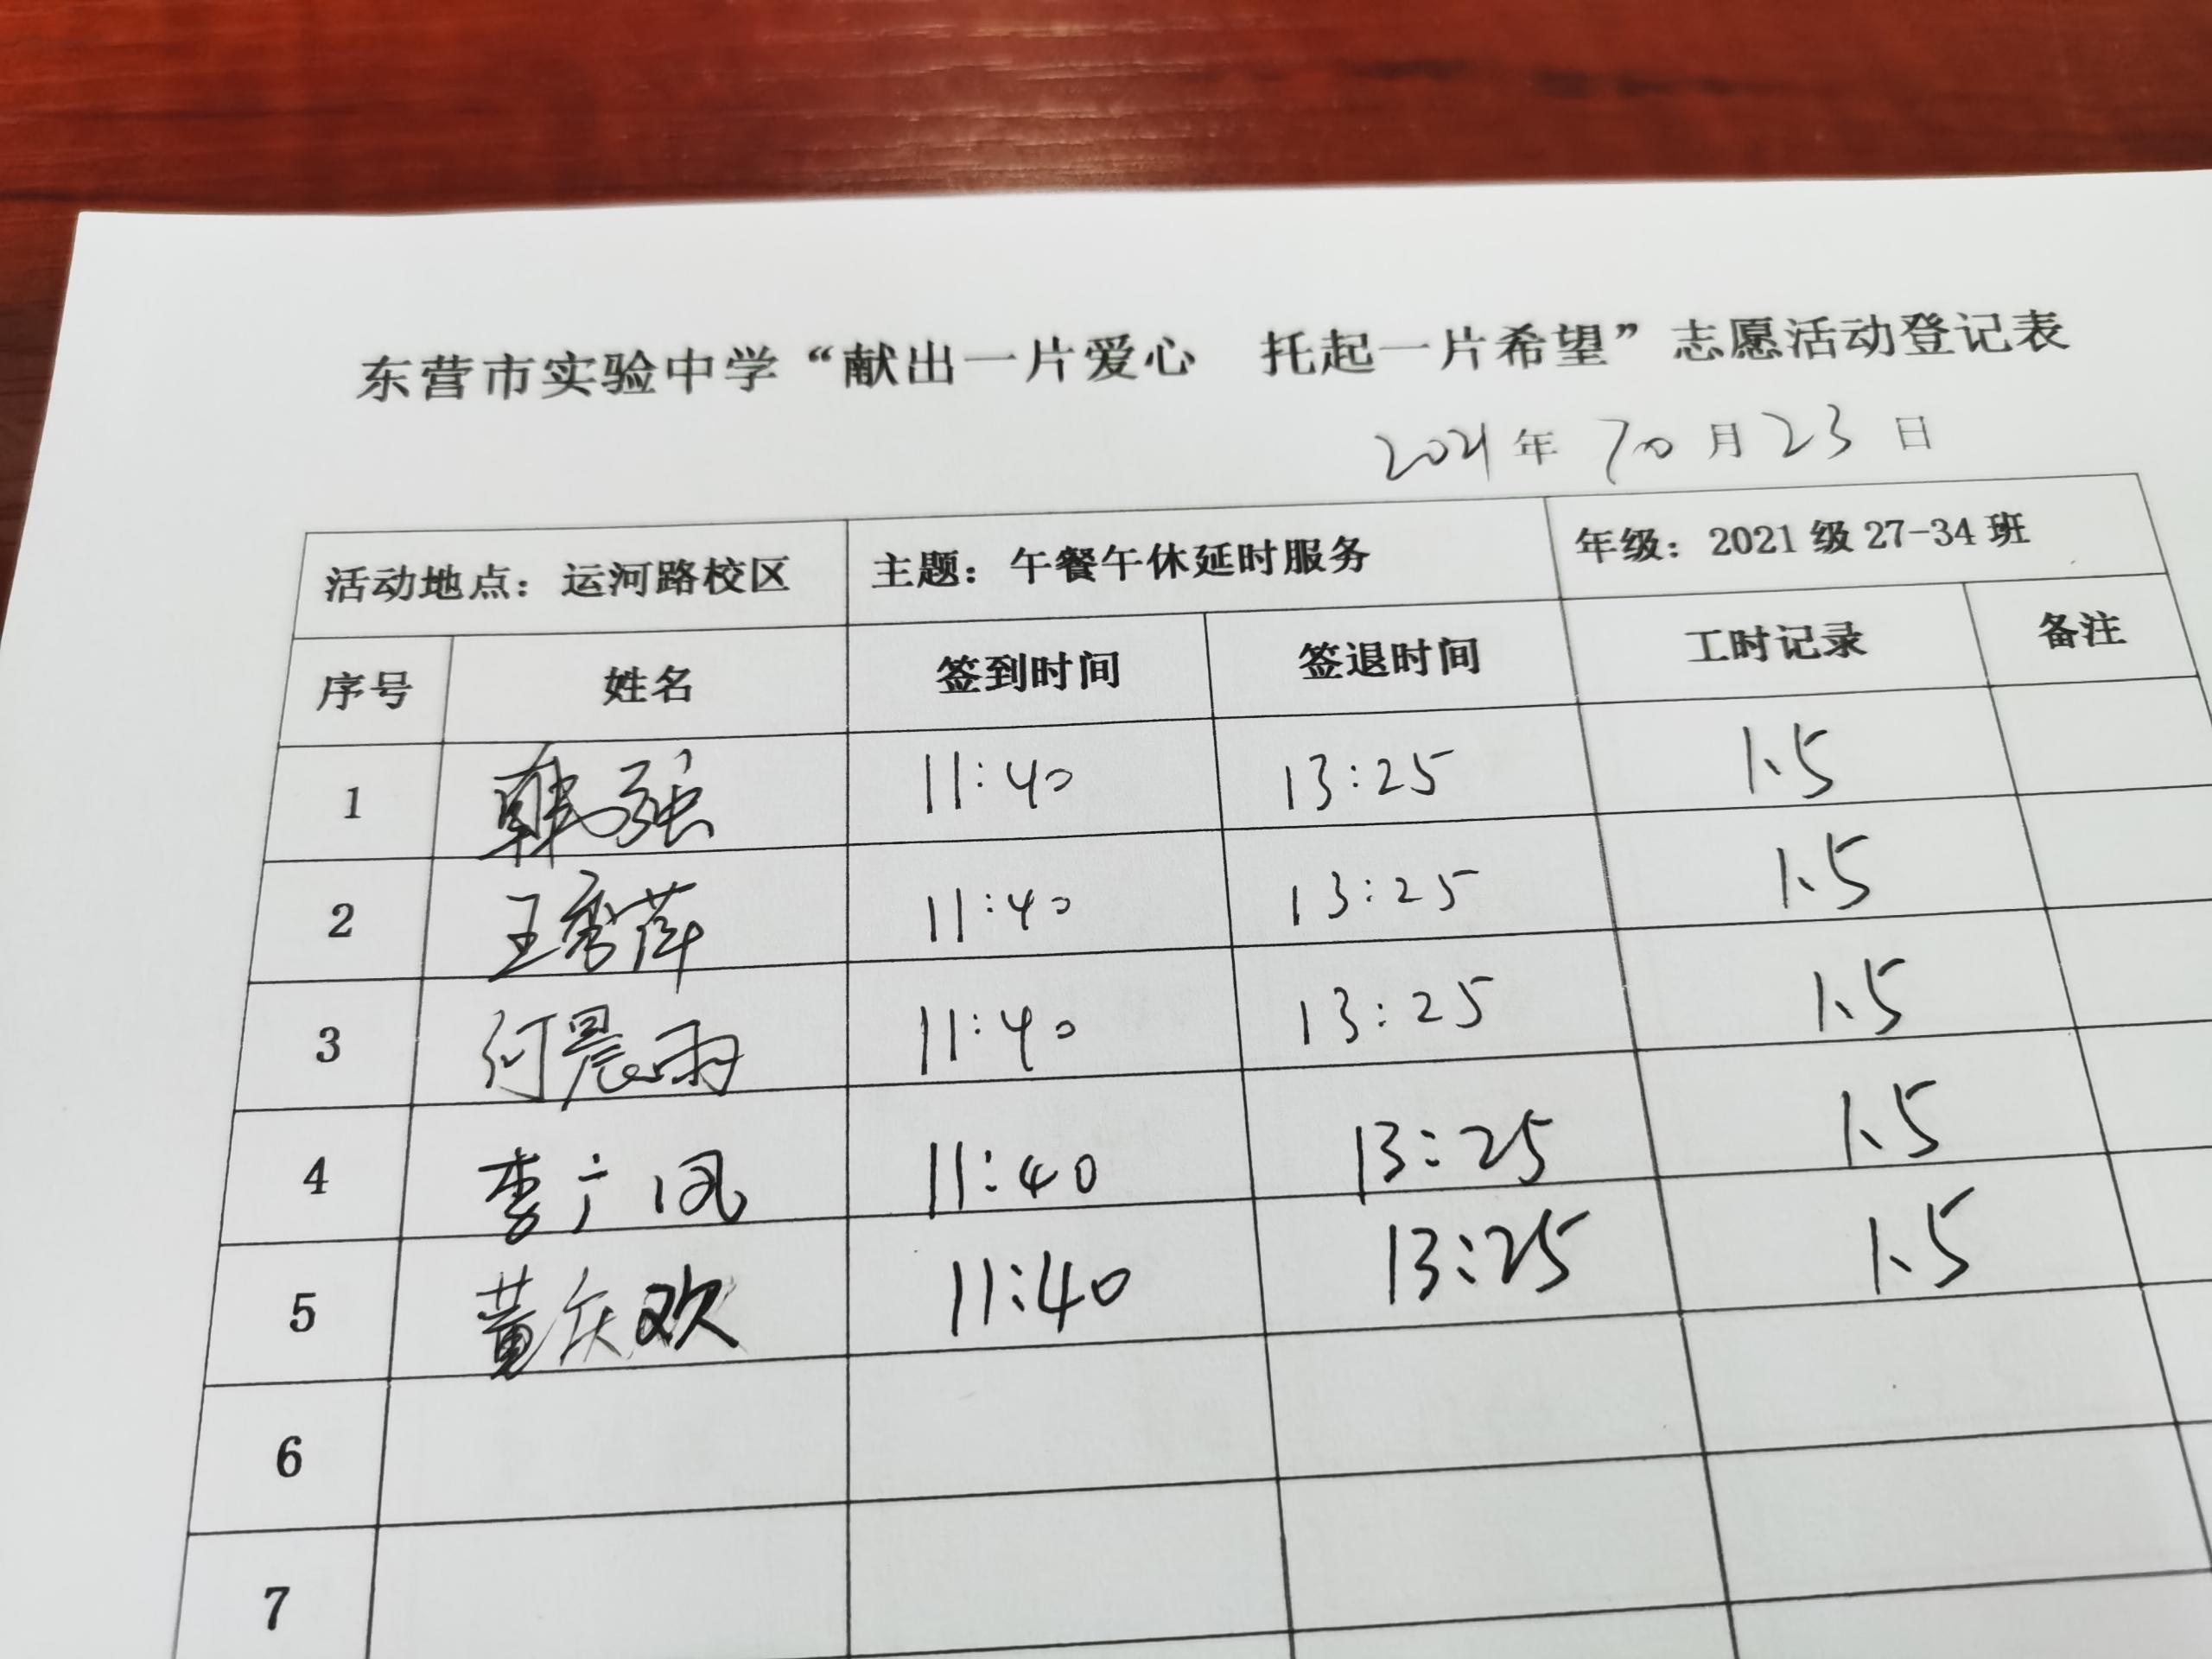 东营市实验中学“献出一片爱心 托起一片希望”志愿活动登记表
2021年10月23日
活动地点：运河路校区 主题：午餐午休延时服务 年级：2021级27-34班
序号 姓名 签到时间 签退时间 工时记录 备注
1 韩强 11:40 13:25 1.5
2 王秀萍 11:40 13:25 1.5
3 何晨雨 11:40 13:25 1.5
4 李广凤 11:40 13:25 1.5
5 黄庆欢 11:40 13:25 1.5
6
7